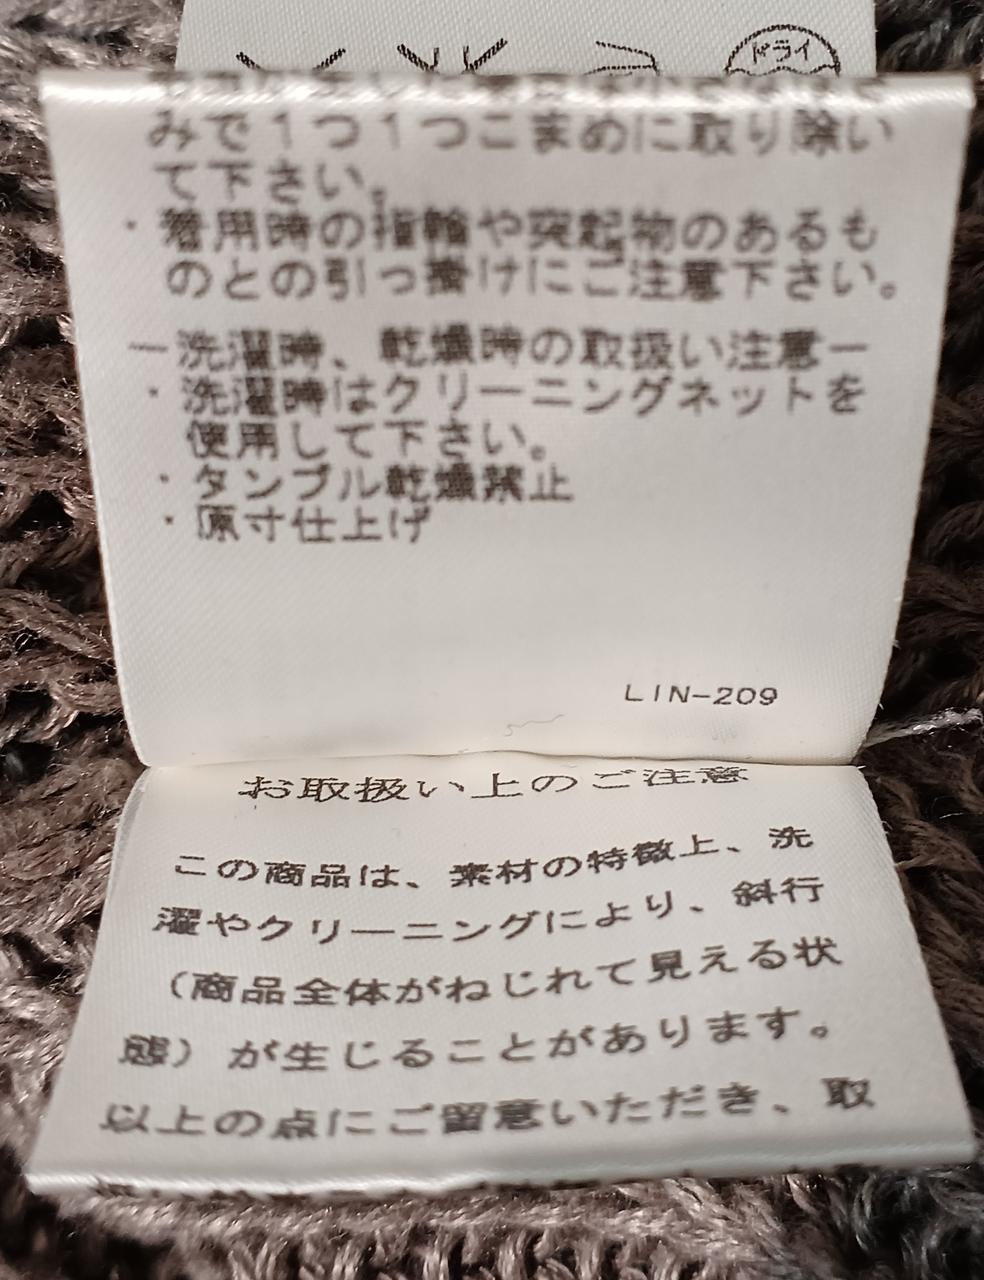 ドライ
みで１つ１つこまめに取り除い
て下さい。
・着用時の指輪や突起物のあるも
のとの引っ掛けにご注意下さい。
ー洗濯時、乾燥時の取扱い注意ー
・洗濯時はクリーニングネットを
使用して下さい。
・タンブル乾燥禁止
・原寸仕上げ
LIN-209
お取扱い上のご注意
この商品は、素材の特徴上、洗
濯やクリーニングにより、斜行
（商品全体がねじれて見える状
態）が生じることがあります。
以上の点にご留意いただき、取